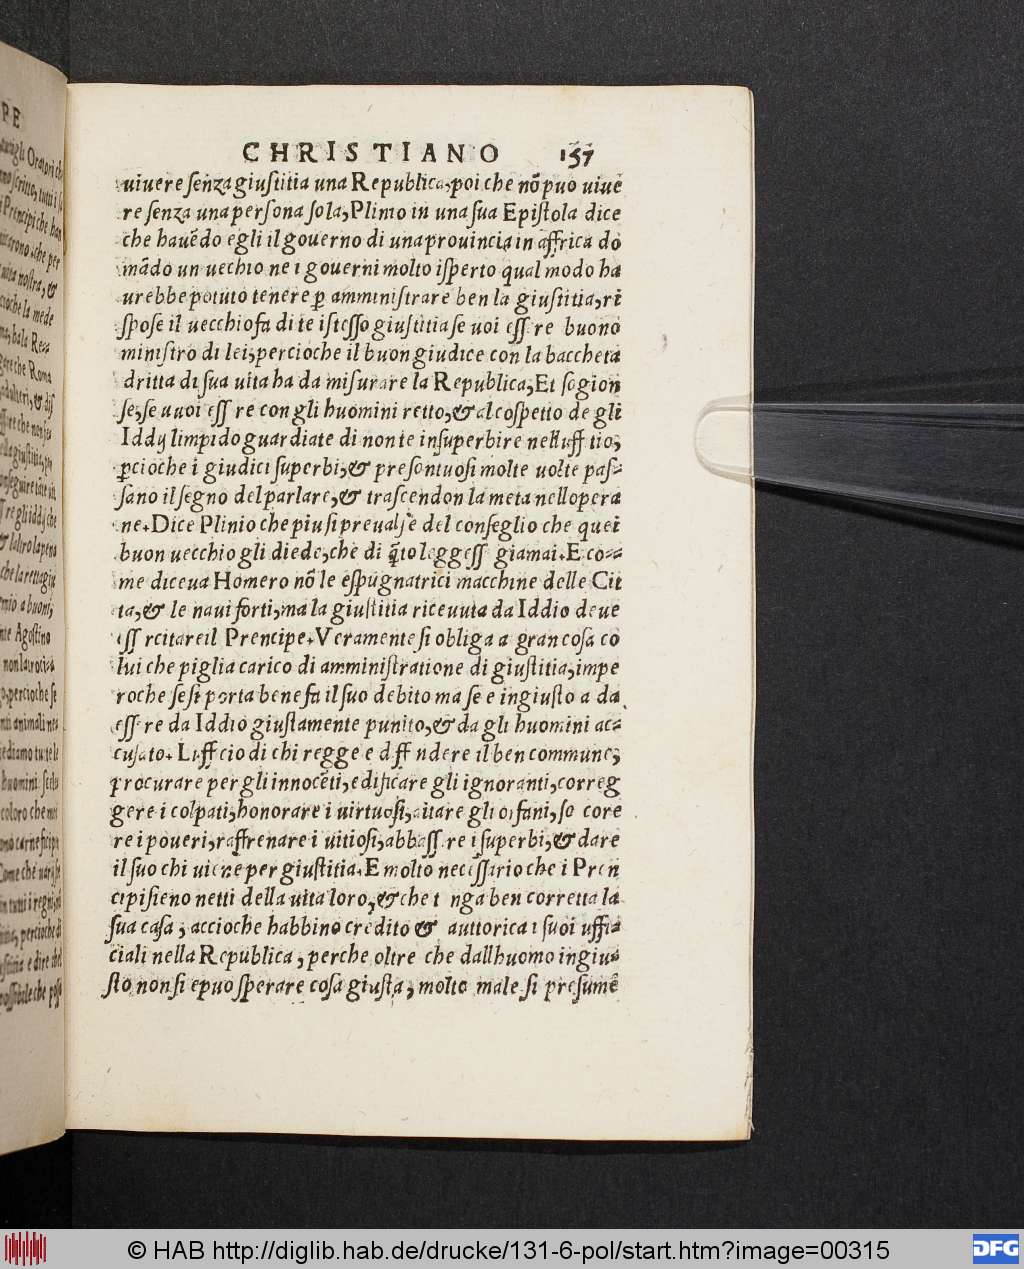 CHRISTIANO 157
uiuere senza giustitia una Republica, poi che nõ puo uiuẽ
re senza una persona sola, Plinio in una sua Epistola dice
che hauẽdo egli il gouerno di una prouincia in affrica do
mãdo un uechio ne i gouerni molto isperto qual modo ha
urebbe potuto tenere p̱ amministrare ben la giustitia, ri
spose il uecchio fa di te istesso giustitia se uoi ess re buono
ministro di lei, percioche il buon giudice con la baccheta
dritta di sua uita ha da misurare la Republica, Et sogion
se, se u uoi ess re con gli huomini retto, & al cospetto de gli
Iddij limpido guardiate di non te insuperbire nell uff tio,
p̱cioche i giudici superbi, & presontuosi molte uolte pas⸗
sano il segno del parlare, & trascendon la meta nell opera
ne. Dice Plinio che piu si preualse del conseglio che quel
buon uecchio gli diede, che di q̃to leggess giamai. E co⸗
me diceua Homero nõ le espugnatrici macchine delle Cit
ta, & le naui forti, ma la giustitia riceuuta da Iddio deue
ess rcitare il Prencipe. Veramente si obliga a gran cosa co
lui che piglia carico di amministratione di giustitia, impe
roche se si porta bene fa il suo debito ma se e ingiusto a da
ess re da Iddio giustamente punito, & da gli huomini ac⸗
cusato. L uff cio di chi regge e diff ndere il ben commune,
procurare per gli innocẽti, edificare gli ignoranti, correg
gere i colpati, honorare i uirtuosi, aitare gli orfani, so core
re i poueri, raffrenare i uitiosi, abbass re i superbi, & dare
il suo chi uiene per giustitia. E molto necessario che i Pren
cipi sieno netti della uita loro, & che t nga ben corretta la
sua casa, accioche habbino credito & auttorica i suoi uffi⸗
ciali nella Republica, perche oltre che dall huomo ingiu⸗
sto non si e puo sperare cosa giusta, molto male si presumẽ
© HAB http://diglib.hab.de/drucke/131-6-pol/start.htm?image=00315
DFG